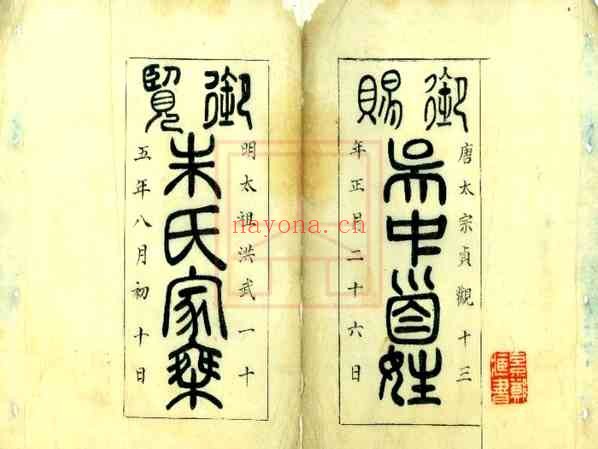 御賜
唐太宗貞觀十三
吳中首姓
年正月二十六日
御覽
明太祖洪武一十
朱氏家乘
五年八月初十日
nayona.cn